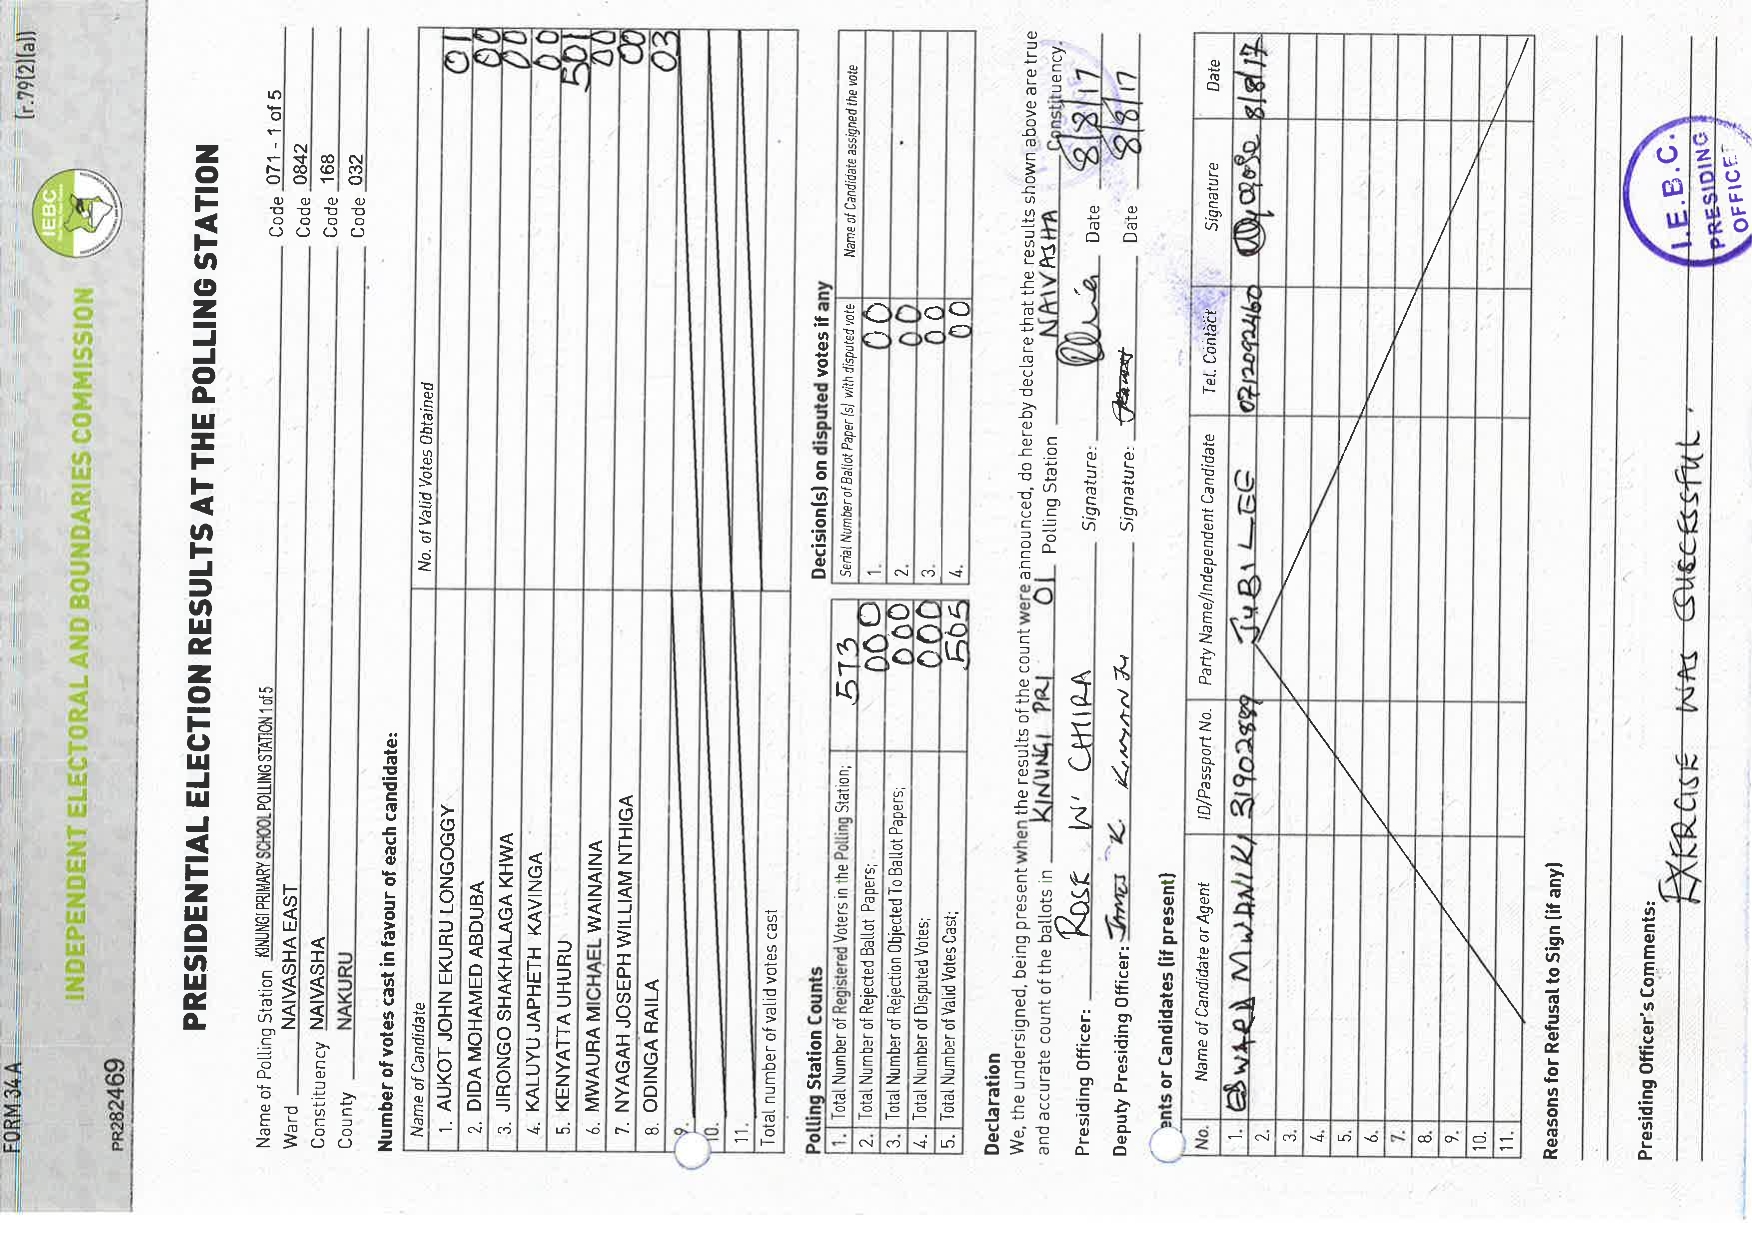 FORM 34 A
(r.79(2)(a))
IEBC
INDEPENDENT ELECTORAL AND BOUNDARIES COMMISSION
PR282469
PRESIDENTIAL ELECTION RESULTS AT THE POLLING STATION
Name of Polling Station KINUNGI PRIMARY SCHOOL POLLING STATION 1 of 5 Code 071 - 1 of 5
Ward NAIVASHA EAST Code 0842
Constituency NAIVASHA Code 168
County NAKURU Code 032
Number of votes cast in favour of each candidate:
Name of Candidate No. of Valid Votes Obtained
1. AUKOT JOHN EKURU LONGOGGY 01
2. DIDA MOHAMED ABDUBA 00
3. JIRONGO SHAKHALAGA KHWA 00
4. KALUYU JAPHETH KAVINGA 00
5. KENYATTA UHURU 501
6. MWAURA MICHAEL WAINAINA 00
7. NYAGAH JOSEPH WILLIAM NTHIGA 00
8. ODINGA RAILA 03
9.
10.
11.
Total number of valid votes cast
Polling Station Counts
1. Total Number of Registered Voters in the Polling Station; 573
2. Total Number of Rejected Ballot Papers; 000
3. Total Number of Rejection Objected To Ballot Papers; 000
4. Total Number of Disputed Votes; 000
5. Total Number of Valid Votes Cast; 505
Decision(s) on disputed votes if any
Serial Number of Ballot Paper (s) with disputed vote Name of Candidate assigned the vote
1. 00
2. 00
3. 00
4. 00
Declaration
We, the undersigned, being present when the results of the count were announced, do hereby declare that the results shown above are true
and accurate count of the ballots in KINUNGI PRI 01 Polling Station NAIVASHA Constituency.
Presiding Officer: ROSE W' CHIRA Signature: Date 8/8/17
Deputy Presiding Officer: James K. Signature: Date 8/8/17
ents or Candidates (if present)
No. Name of Candidate or Agent ID/Passport No. Party Name/Independent Candidate Tel. Contact Signature Date
1. EDWARD MWANIKI 31902889 JUBILEE 0712092460 8/8/17
2.
3.
4.
5.
6.
7.
8.
9.
10.
11.
Reasons for Refusal to Sign (if any)
Presiding Officer's Comments:
EXERCISE WAS SUCCESSFUL.
I.E.B.C.
PRESIDING
OFFICE